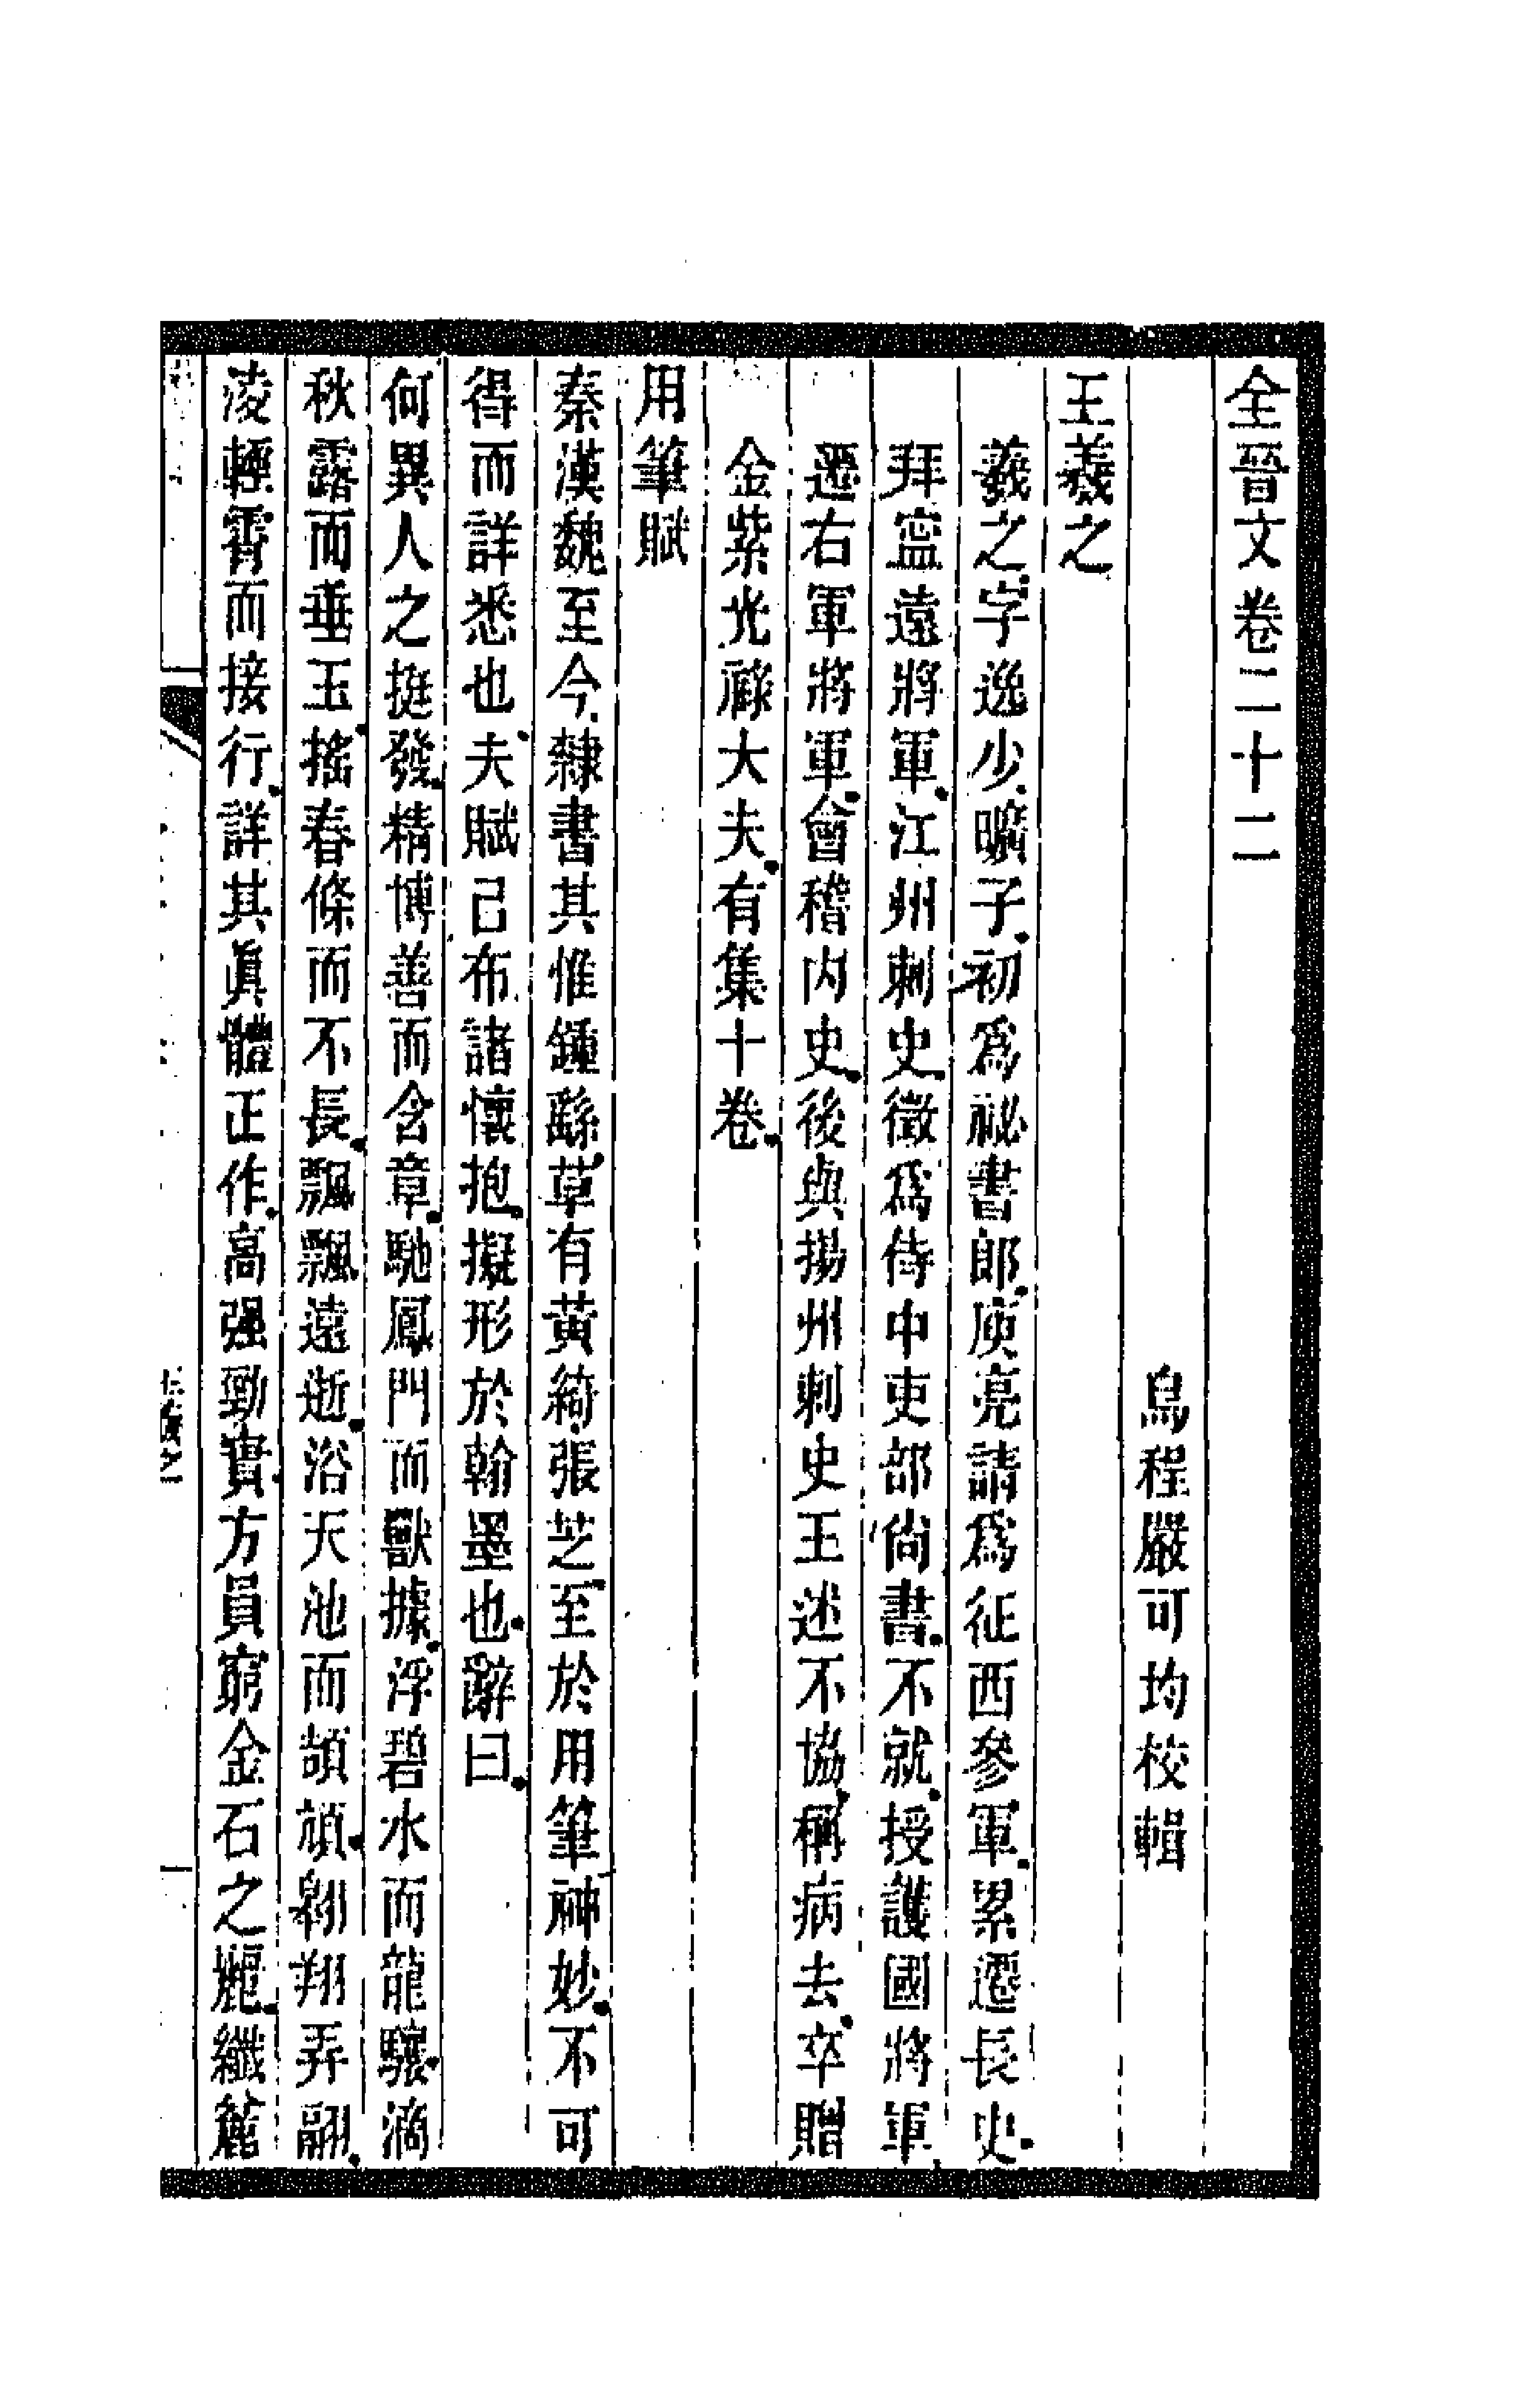 全晉文卷二十二
烏程嚴可均校輯
王羲之
羲之字逸少曠子初爲祕書郎庾亮請爲征西參軍累遷長史
拜寍遠將軍江州刺史徵爲侍中吏部尙書不就授護國將軍
遷右軍將軍會稽内史後與揚州刺史王述不協稱病去卒贈
金紫光祿大夫有集十卷
用筆賦
秦漢魏至今隸書其惟鍾繇草有黃綺張芝至於用筆神妙不可
得而詳悉也夫賦已布諸懷抱擬形於翰墨也辭曰
何異人之挺發精博善而含章馳鳳門而獸據浮碧水而龍驤滴
秋露而垂玉搖春條而不長飄飄遠逝浴天池而頡頏翱翔弄翮
淩輕霄而接行詳其眞體正作高强勁實方員窮金石之麗纖麤
王羲之
一